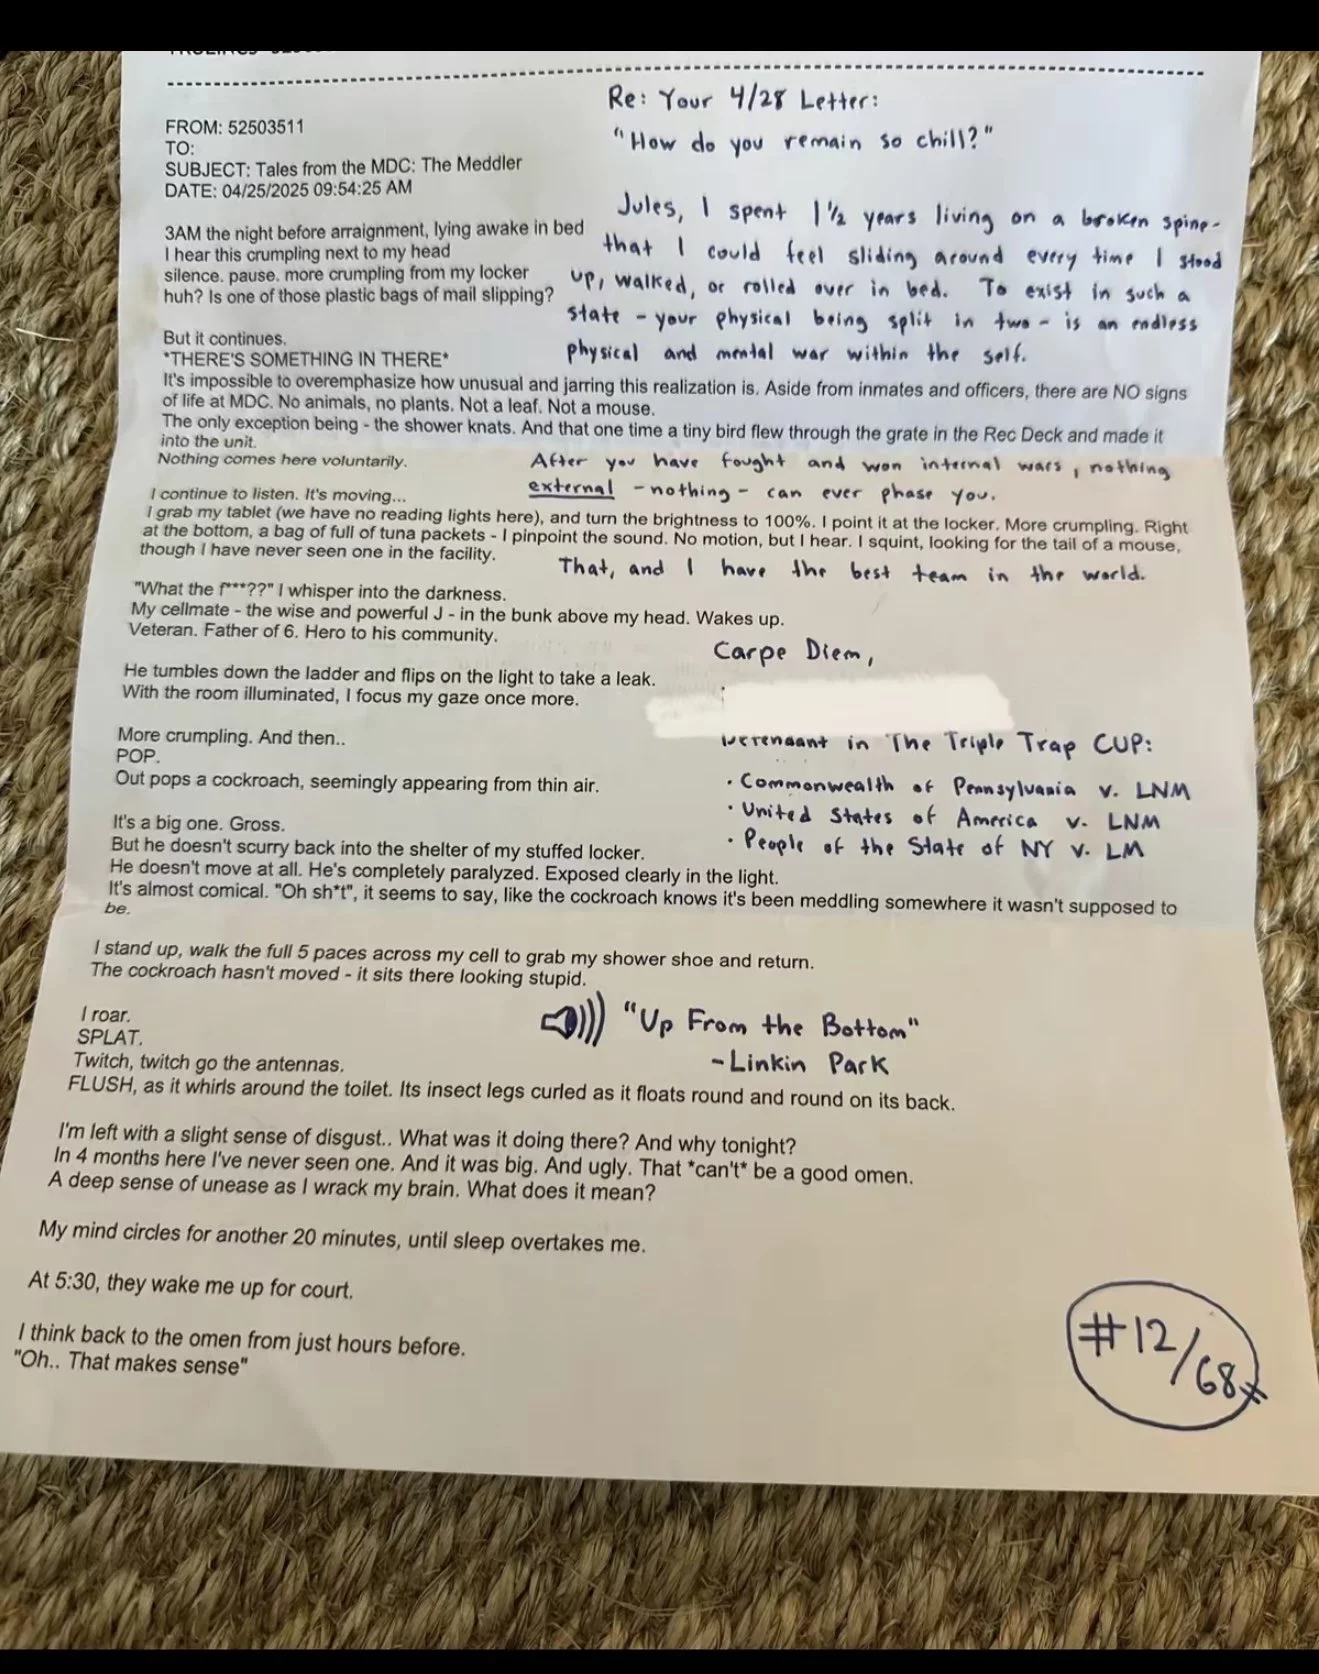 FROM: 52503511
TO:
SUBJECT: Tales from the MDC: The Meddler
DATE: 04/25/2025 09:54:25 AM
Re: Your 4/28 Letter:
"How do you remain so chill?"
Jules, I spent 1 1/2 years living on a broken spine-
that I could feel sliding around every time I stood
up, walked, or rolled over in bed. To exist in such a
state - your physical being split in two - is an endless
physical and mental war within the self.
3AM the night before arraignment, lying awake in bed
I hear this crumpling next to my head
silence. pause. more crumpling from my locker
huh? Is one of those plastic bags of mail slipping?
But it continues.
*THERE'S SOMETHING IN THERE*
It's impossible to overemphasize how unusual and jarring this realization is. Aside from inmates and officers, there are NO signs
of life at MDC. No animals, no plants. Not a leaf. Not a mouse.
The only exception being - the shower knats. And that one time a tiny bird flew through the grate in the Rec Deck and made it
into the unit.
Nothing comes here voluntarily.
After you have fought and won internal wars, nothing
external - nothing - can ever phase you.
I continue to listen. It's moving...
I grab my tablet (we have no reading lights here), and turn the brightness to 100%. I point it at the locker. More crumpling. Right
at the bottom, a bag of full of tuna packets - I pinpoint the sound. No motion, but I hear. I squint, looking for the tail of a mouse,
though I have never seen one in the facility.
That, and I have the best team in the world.
"What the f***??" I whisper into the darkness.
My cellmate - the wise and powerful J - in the bunk above my head. Wakes up.
Veteran. Father of 6. Hero to his community.
Carpe Diem,
He tumbles down the ladder and flips on the light to take a leak.
With the room illuminated, I focus my gaze once more.
Defendant in The Triple Trap CUP:
· Commonwealth of Pennsylvania v. LNM
· United States of America v. LNM
· People of the State of NY v. LM
More crumpling. And then..
POP.
Out pops a cockroach, seemingly appearing from thin air.
It's a big one. Gross.
But he doesn't scurry back into the shelter of my stuffed locker.
He doesn't move at all. He's completely paralyzed. Exposed clearly in the light.
It's almost comical. "Oh sh*t", it seems to say, like the cockroach knows it's been meddling somewhere it wasn't supposed to
be.
I stand up, walk the full 5 paces across my cell to grab my shower shoe and return.
The cockroach hasn't moved - it sits there looking stupid.
I roar.
SPLAT.
Twitch, twitch go the antennas.
FLUSH, as it whirls around the toilet. Its insect legs curled as it floats round and round on its back.
"Up From the Bottom"
-Linkin Park
I'm left with a slight sense of disgust.. What was it doing there? And why tonight?
In 4 months here I've never seen one. And it was big. And ugly. That *can't* be a good omen.
A deep sense of unease as I wrack my brain. What does it mean?
My mind circles for another 20 minutes, until sleep overtakes me.
At 5:30, they wake me up for court.
I think back to the omen from just hours before.
"Oh.. That makes sense"
#12/68